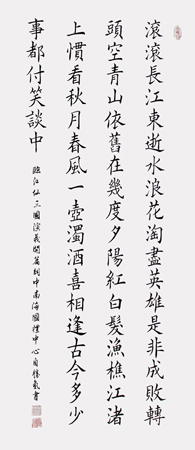 滾滾長江東逝水浪花淘盡英雄是非成敗轉
頭空青山依舊在幾度夕陽紅白髮漁樵江渚
上慣看秋月春風一壺濁酒喜相逢古今多少
事都付笑談中
臨江仙三國演義開篇詞中南海國禮中心書